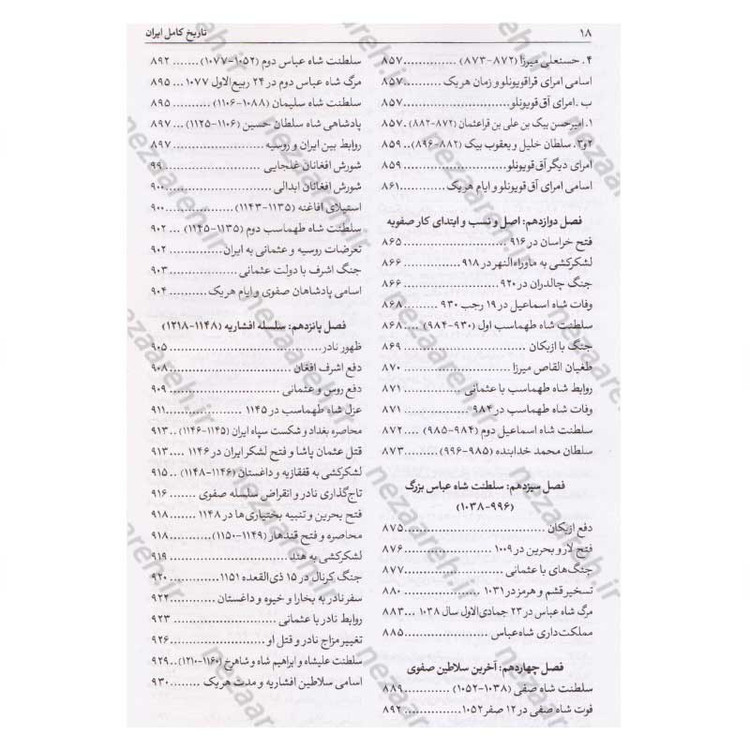 ۱۸
تاریخ کامل ایران
۴. حسنعلی میرزا (۸۷۲-۸۷۳) .............. ۸۵۷
اسامی امرای قراقویونلو و زمان هر یک ........ ۸۵۷
ب. امرای آق قویونلو .......................... ۸۵۷
۱. امیرحسن بیک بن علی بن قراعثمان (۸۷۲-۸۸۲) . ۸۵۷
۲و۳. سلطان خلیل و یعقوب بیک (۸۸۲-۸۹۶) .. ۸۵۹
امرای دیگر آق قویونلو ........................ ۸۵۹
اسامی امرای آق قویونلو و ایام هر یک ......... ۸۶۱
فصل دوازدهم: اصل و نسب و ابتدای کار صفویه
فتح خراسان در ۹۱۶ .......................... ۸۶۵
لشکرکشی به ماوراءالنهر در ۹۱۸ ............. ۸۶۶
جنگ چالدران در ۹۲۰ ........................ ۸۶۶
وفات شاه اسماعیل در ۱۹ رجب ۹۳۰ ......... ۸۶۸
سلطنت شاه طهماسب اول (۹۳۰-۹۸۴) ..... ۸۶۸
جنگ با ازبکان ............................... ۸۶۹
طغیان القاص میرزا .......................... ۸۷۰
روابط شاه طهماسب با عثمانی .............. ۸۷۱
وفات شاه طهماسب در ۹۸۴ ................. ۸۷۱
سلطنت شاه اسماعیل دوم (۹۸۴-۹۸۵) .... ۸۷۲
سلطان محمد خدابنده (۹۸۵-۹۹۶) ......... ۸۷۳
فصل سیزدهم: سلطنت شاه عباس بزرگ
(۹۹۶-۱۰۳۸)
دفع ازبکان .................................. ۸۷۵
فتح لار و بحرین در ۱۰۰۹ ................... ۸۷۶
جنگ‌های با عثمانی ......................... ۸۷۷
تسخیر قشم و هرمز در ۱۰۳۱ ............... ۸۸۰
مرگ شاه عباس در ۲۳ جمادی‌الاول سال ۱۰۳۸ ... ۸۸۳
مملکت‌داری شاه‌عباس ....................... ۸۸۵
فصل چهاردهم: آخرین سلاطین صفوی
سلطنت شاه صفی (۱۰۳۸-۱۰۵۲) ........... ۸۸۹
فوت شاه صفی در ۱۲ صفر ۱۰۵۲ ............ ۸۹۲
سلطنت شاه عباس دوم (۱۰۵۲-۱۰۷۷) ....... ۸۹۲
مرگ شاه عباس دوم در ۲۴ ربیع‌الاول ۱۰۷۷ ... ۸۹۵
سلطنت شاه سلیمان (۱۰۸۸-۱۱۰۶) .......... ۸۹۵
پادشاهی شاه سلطان حسین (۱۱۰۶-۱۱۲۵) ... ۸۹۷
روابط بین ایران و روسیه ...................... ۸۹۷
شورش افغانان غلجایی ....................... ۹۹
شورش افغانان ابدالی ......................... ۹۰۰
استیلای افاغنه (۱۱۳۵-۱۱۴۳) ................. ۹۰۰
سلطنت شاه طهماسب دوم (۱۱۳۵-۱۱۴۵) ... ۹۰۲
تعرضات روسیه و عثمانی به ایران ............ ۹۰۲
جنگ اشرف با دولت عثمانی ................. ۹۰۳
اسامی پادشاهان صفوی و ایام هر یک ......... ۹۰۴
فصل پانزدهم: سلسله افشاریه (۱۱۴۸-۱۲۱۸)
ظهور نادر ................................... ۹۰۵
دفع اشرف افغان ............................. ۹۰۸
دفع روس و عثمانی .......................... ۹۰۹
عزل شاه طهماسب در ۱۱۴۵ ................. ۹۱۱
محاصره بغداد و شکست سپاه ایران (۱۱۴۵-۱۱۴۶) .. ۹۱۳
قتل عثمان پاشا و فتح لشکر ایران در ۱۱۴۶ .... ۹۱۳
لشکرکشی به قفقازیه و داغستان (۱۱۴۶-۱۱۴۸) .. ۹۱۵
تاج‌گذاری نادر و انقراض سلسله صفوی ....... ۹۱۶
فتح بحرین و تنبیه بختیاری‌ها در ۱۱۴۸ ....... ۹۱۸
محاصره و فتح قندهار (۱۱۴۹-۱۱۵۰) ......... ۹۱۸
لشکرکشی به هند ............................ ۹۱۹
جنگ کرنال در ۱۵ ذی‌القعده ۱۱۵۱ ........... ۹۲۰
سفر نادر به بخارا و خیوه و داغستان .......... ۹۲۲
روابط نادر با عثمانی ......................... ۹۲۳
تغییر مزاج نادر و قتل او ...................... ۹۲۶
سلطنت علیشاه و ابراهیم شاه و شاهرخ (۱۱۶۰-۱۲۱۰) .. ۹۲۹
اسامی سلاطین افشاریه و مدت هر یک ........ ۹۳۰
nezaareh.ir